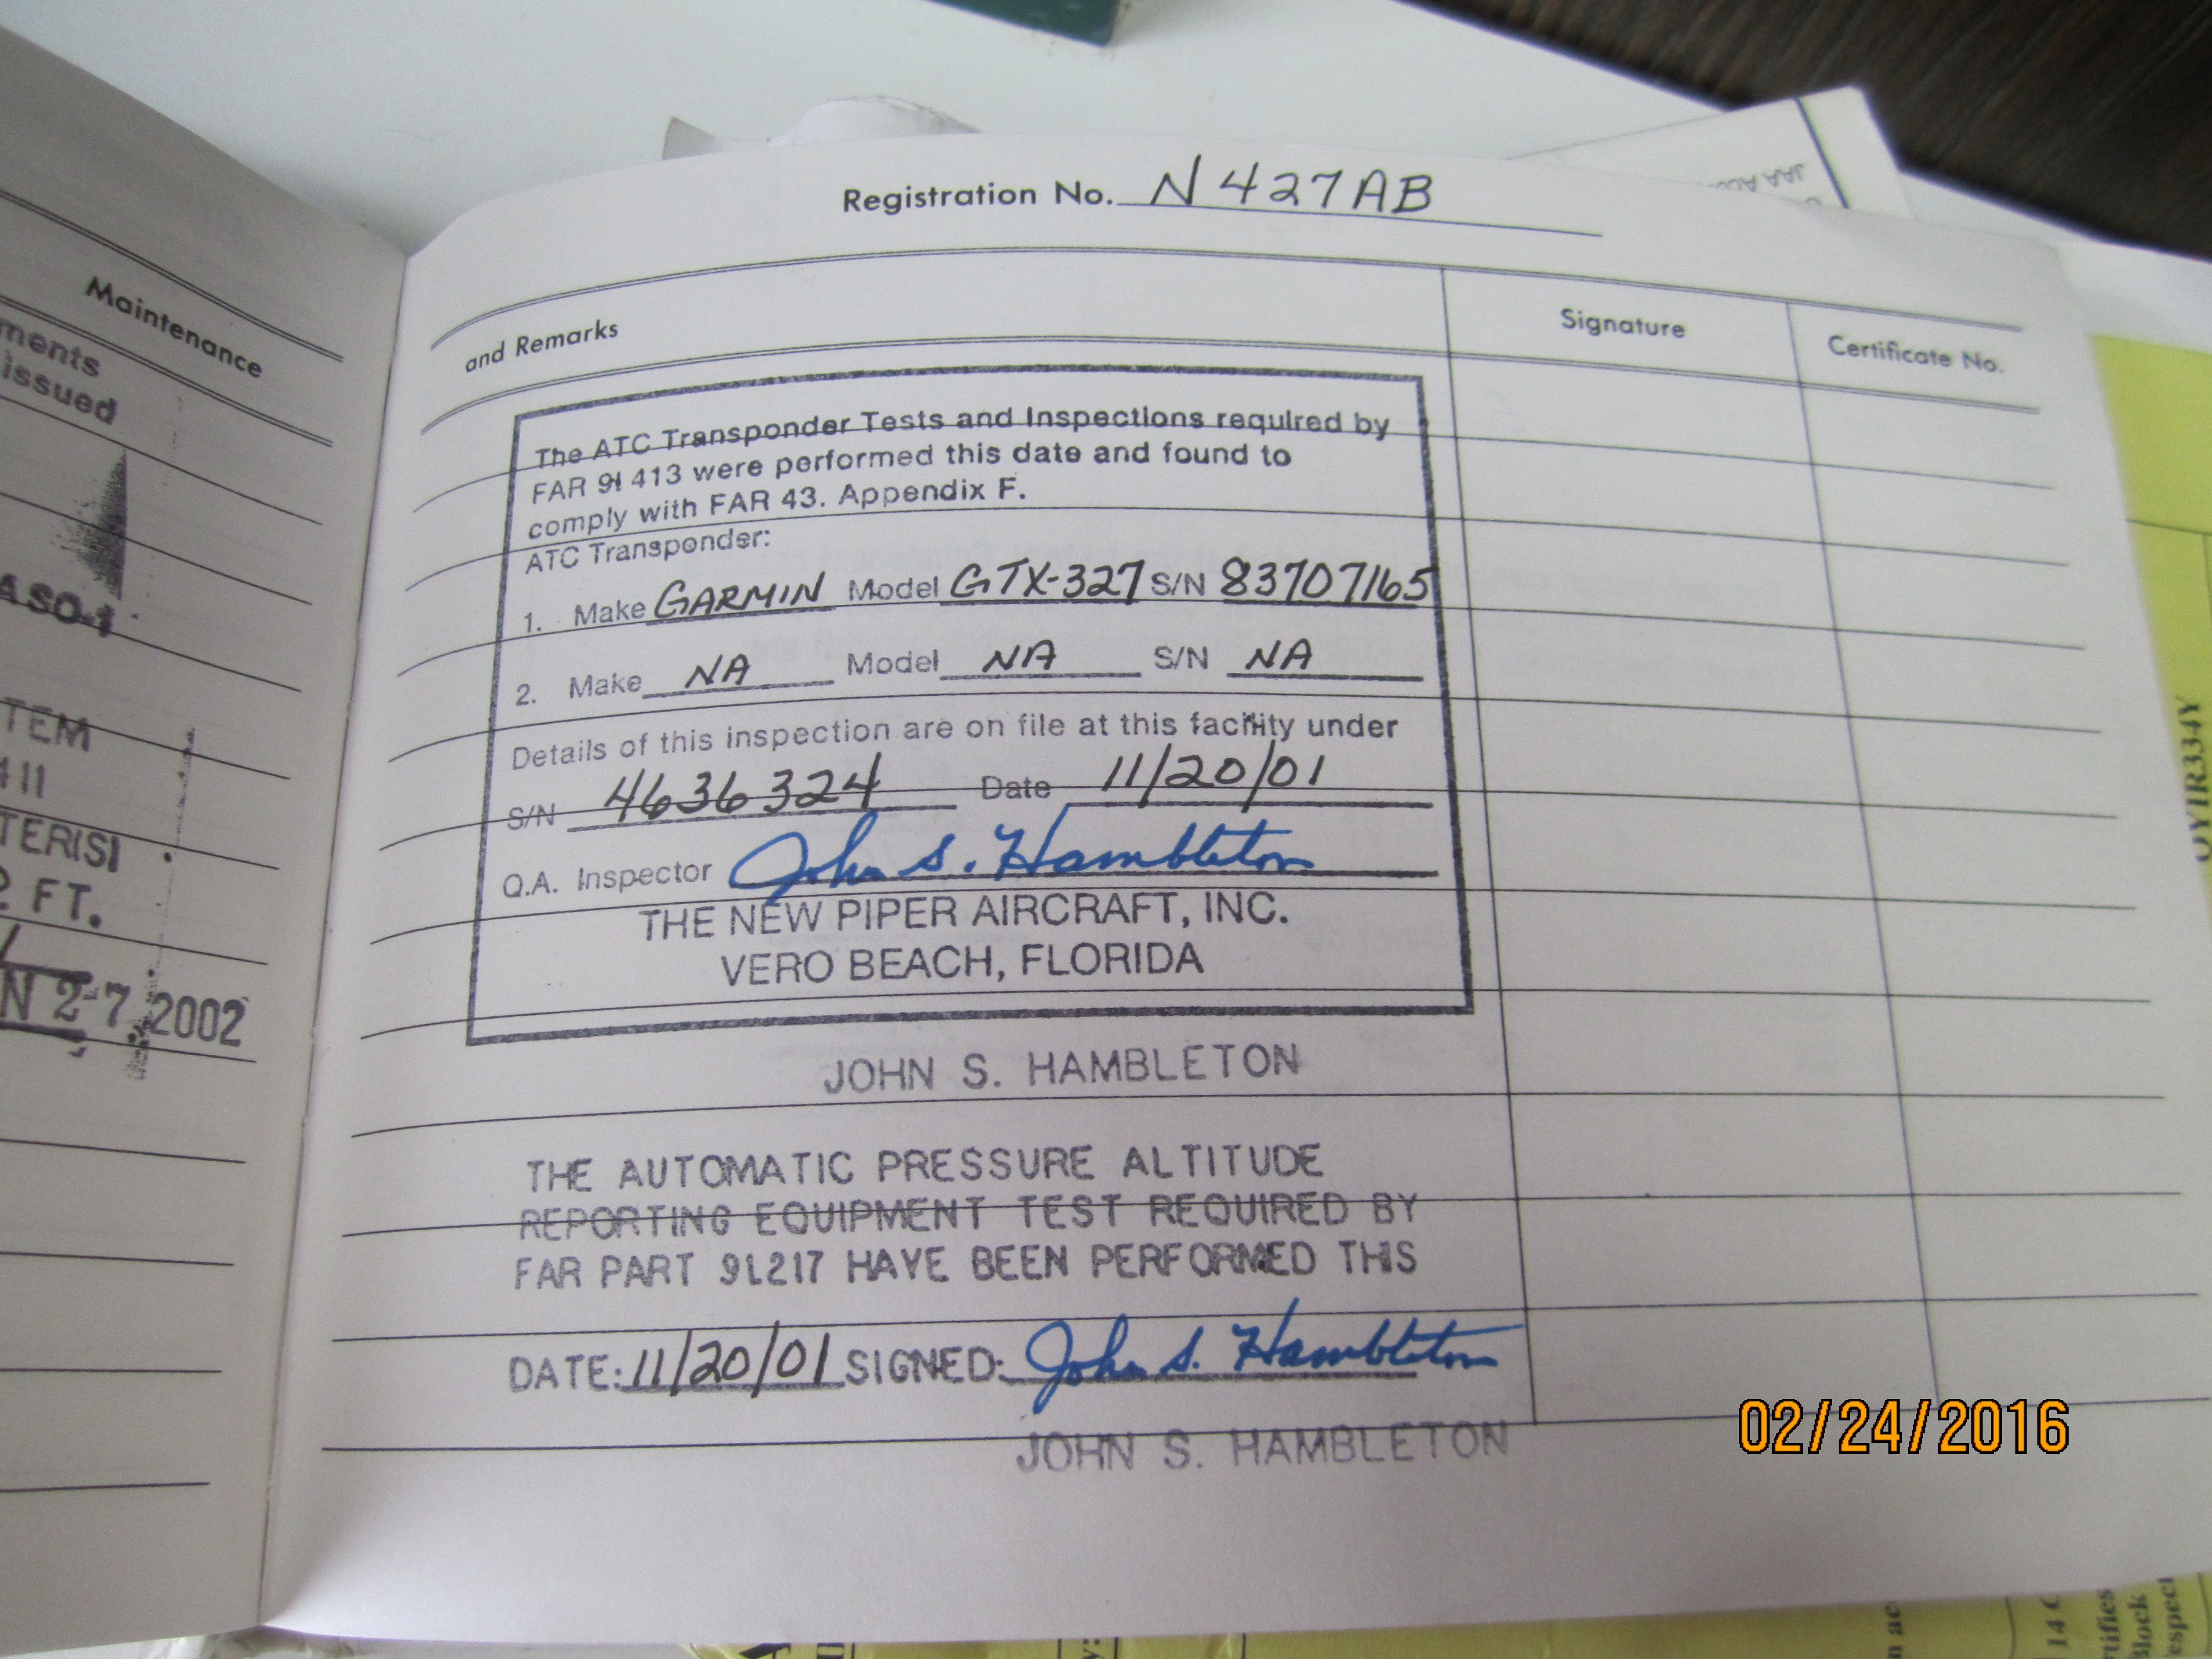 Maintenance
ments
issued
ASO-1
TEM
411
TER(S)
2 FT.
N 27, 2002
Registration No. N427AB
and Remarks
Signature
Certificate No.
The ATC Transponder Tests and Inspections required by
FAR 91 413 were performed this date and found to
comply with FAR 43. Appendix F.
ATC Transponder:
1. Make GARMIN Model GTX-327 S/N 83707165
2. Make NA Model NA S/N NA
Details of this inspection are on file at this facility under
S/N 4636324 Date 11/20/01
Q.A. Inspector John S. Hambleton
THE NEW PIPER AIRCRAFT, INC.
VERO BEACH, FLORIDA
JOHN S. HAMBLETON
THE AUTOMATIC PRESSURE ALTITUDE
REPORTING EQUIPMENT TEST REQUIRED BY
FAR PART 91.217 HAVE BEEN PERFORMED THIS
DATE: 11/20/01 SIGNED: John S. Hambleton
JOHN S. HAMBLETON
02/24/2016
OY1R334Y
14 C
rtifies
Block
especi
n ac